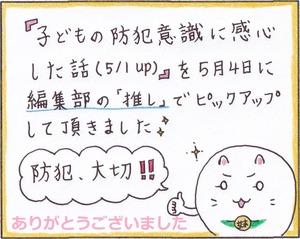 『子どもの防犯意識に感心
した話(5/1 up)』を5月4日に
編集部の「推し」でピックアップ
して頂きました
防犯、大切!!
ありがとうございました